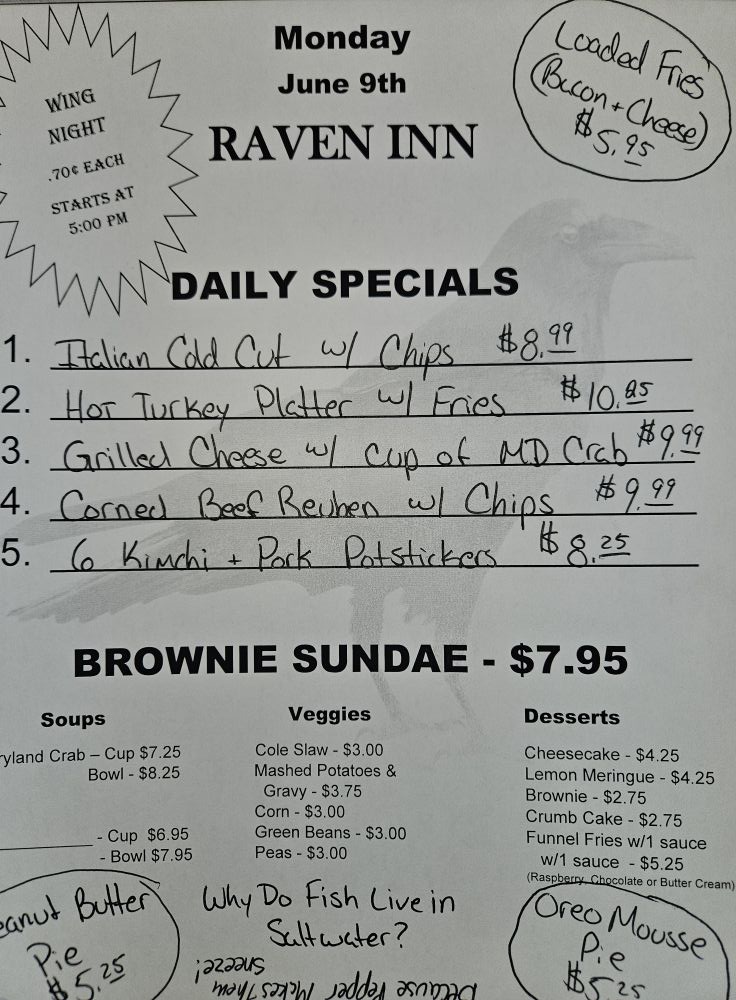 WING
NIGHT
.70¢ EACH
STARTS AT
5:00 PM
Monday
June 9th
RAVEN INN
Loaded Fries
(Bacon + Cheese)
$5.95
DAILY SPECIALS
1. Italian Cold Cut w/ Chips $8.99
2. Hot Turkey Platter w/ Fries $10.25
3. Grilled Cheese w/ Cup of MD Crab $9.99
4. Corned Beef Reuben w/ Chips $9.99
5. 6 Kimchi + Pork Potstickers $8.25
BROWNIE SUNDAE - $7.95
Soups
ryland Crab – Cup $7.25
Bowl - $8.25
- Cup $6.95
- Bowl $7.95
Veggies
Cole Slaw - $3.00
Mashed Potatoes &
Gravy - $3.75
Corn - $3.00
Green Beans - $3.00
Peas - $3.00
Desserts
Cheesecake - $4.25
Lemon Meringue - $4.25
Brownie - $2.75
Crumb Cake - $2.75
Funnel Fries w/1 sauce
w/1 sauce - $5.25
(Raspberry, Chocolate or Butter Cream)
eanut Butter
Pie
$5.25
Why Do Fish Live in
Saltwater?
Because Pepper Makes Them
Sneeze!
Oreo Mousse
Pie
$5.25